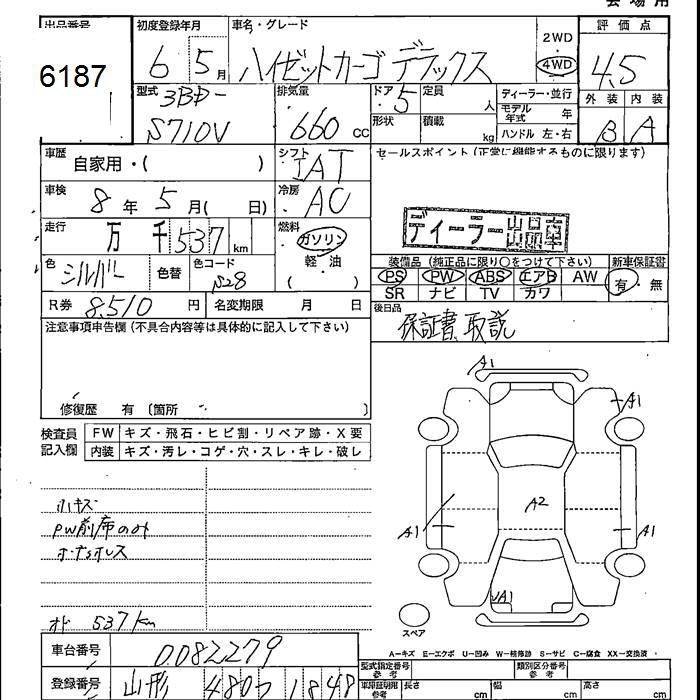 会場用
出品番号
6187
初度登録年月
6 5月
車名・グレード
ハイゼットカーゴ デラックス
2WD
4WD
評価点
4.5
外装 内装
B A
型式
3BD-
S710V
排気量
660 cc
ドア 5
定員 人
形状
積載 kg
ディーラー・並行
モデル年式 年
ハンドル 左・右
車歴
自家用・( )
シフト
IAT
セールスポイント(正常に機能するものに限ります)
車検
8年 5月( 日)
冷房
AC
走行
万 千 537 km
燃料
ガソリン
( 軽・油 )
ディーラー出品車
色
シルバー
色替
色コード
S28
装備品(純正品に限り○をつけて下さい)
PS PW ABS エアB AW
SR ナビ TV カワ
新車保証書
有・無
R券 8,510 円
名変期限 月 日
後日品
保証書、取説
注意事項申告欄(不具合内容等は具体的に記入して下さい)
修復歴 有〔箇所 〕
検査員記入欄
FW キズ・飛石・ヒビ割・リペア跡・X要
内装 キズ・汚レ・コゲ・穴・スレ・キレ・破レ
小キズ
PW前席のみ
オド 537km
A1
A1
A2
A1
A1
A1
スペア
A－キズ E－エクボ U－凹み W－補修跡 S－サビ C－腐食 XX－交換済
車台番号
0082279
登録番号
山形 480 1848
型式指定番号 参考
類別区分番号 参考
車庫証明用 参考
長さ cm
幅 cm
高さ cm